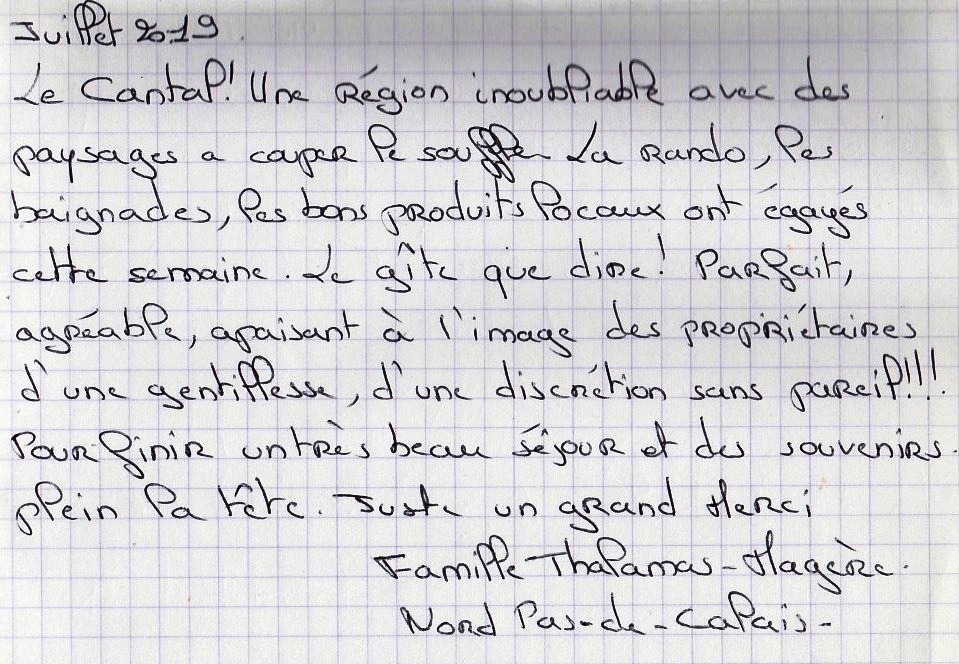 Juillet 2019.
Le Cantal! Une Région inoubliable avec des
paysages a couper le souffle La Rando, les
baignades, les bons produits locaux ont égayés
cette semaine. Le gîte que dire! Parfait,
agréable, apaisant à l'image des propriétaires
d'une gentillesse, d'une discrétion sans pareil!!!.
Pour finir un très beau séjour et des souvenirs.
plein la tête. Juste un grand Merci
Famille Thalamas-Magère.
Nord Pas-de-Calais-